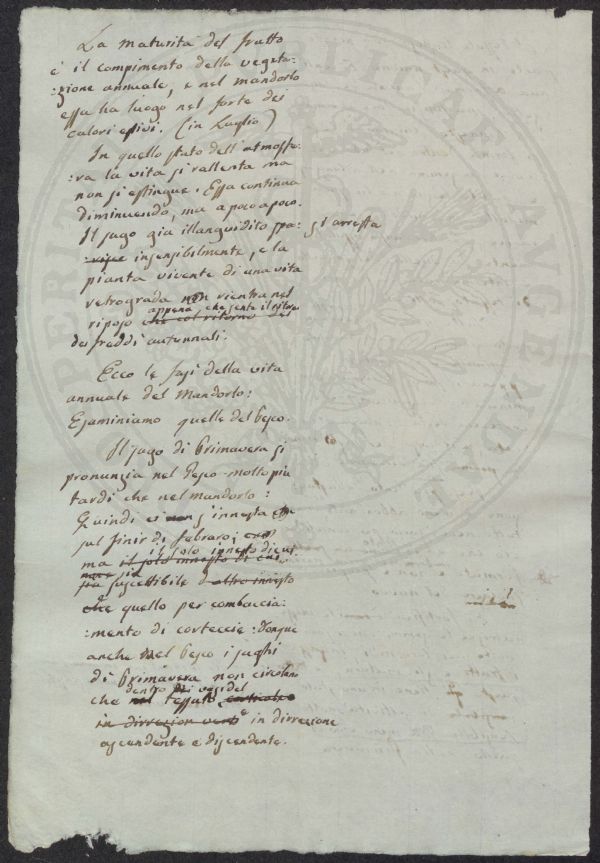 La maturità del frutto
è il compimento della vegeta:
:zione annuale, e nel mandorlo
essa ha luogo nel forte dei
calori estivi. (in Luglio)
In quello stato dell'atmosfe:
:ra la vita si rallenta ma
non si estingue. Essa continua
diminuendo, ma a poco a poco.
Il sugo già illanguidito si arresta
insensibilmente, e la
pianta vivente di una vita
retrograda non rientra nel
appena che sente il ritorno
riposo che col ritorno dei
dei freddi autunnali.
Ecco le fasi della vita
annuale del Mandorlo:
Esaminiamo quelle del Pesco.
Il sugo di Primavera si
pronunzia nel Pesco molto più
tardi che nel mandorlo:
Quindi s'innesta
sul finir di febraro;
il solo innesto di cui
ma il solo innesto di cui
sia suscettibile d altro innesto
che quello per combaccia:
:mento di corteccie: Dunque
anche nel Pesco i sughi
di Primavera non circolano
dentro i vasi del
che nel tessuto corticale
in direzion verti in dirrezione
ascendente e discendente.
PERIC PUBLICAE INGENDAE